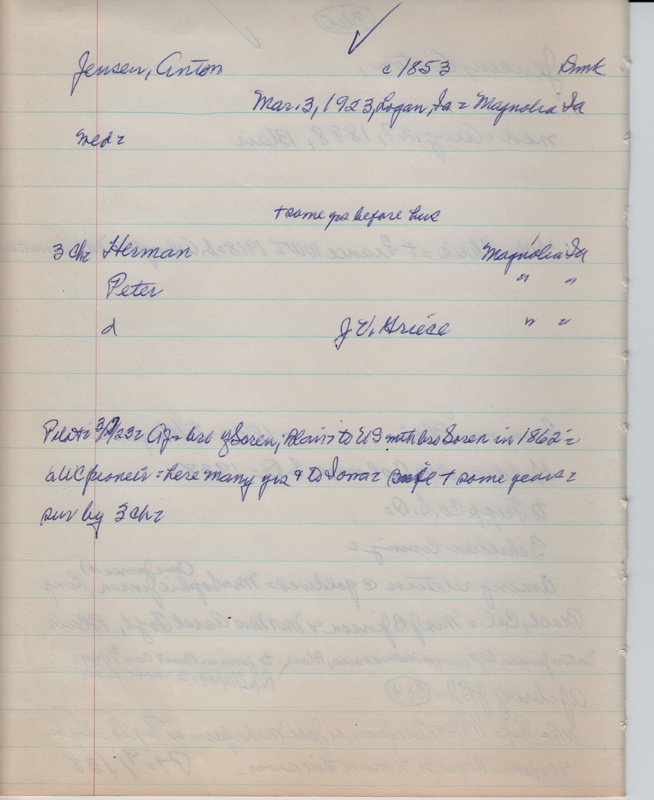 Jensen, Anton c1853 Dmk
Mar. 3, 1923, Logan, Ia = Magnolia Ia
med =
+ some yrs before hus
3 ch = Herman Magnolia Ia
Peter " "
d J V. Griese " "
Pilot = 3/7/23 = AJ = bro of Soren; Blair > to US with bro Soren in 1862 =
a WC pioneer = here many yrs & to Iowa = wife + some years =
sur by 3 ch =